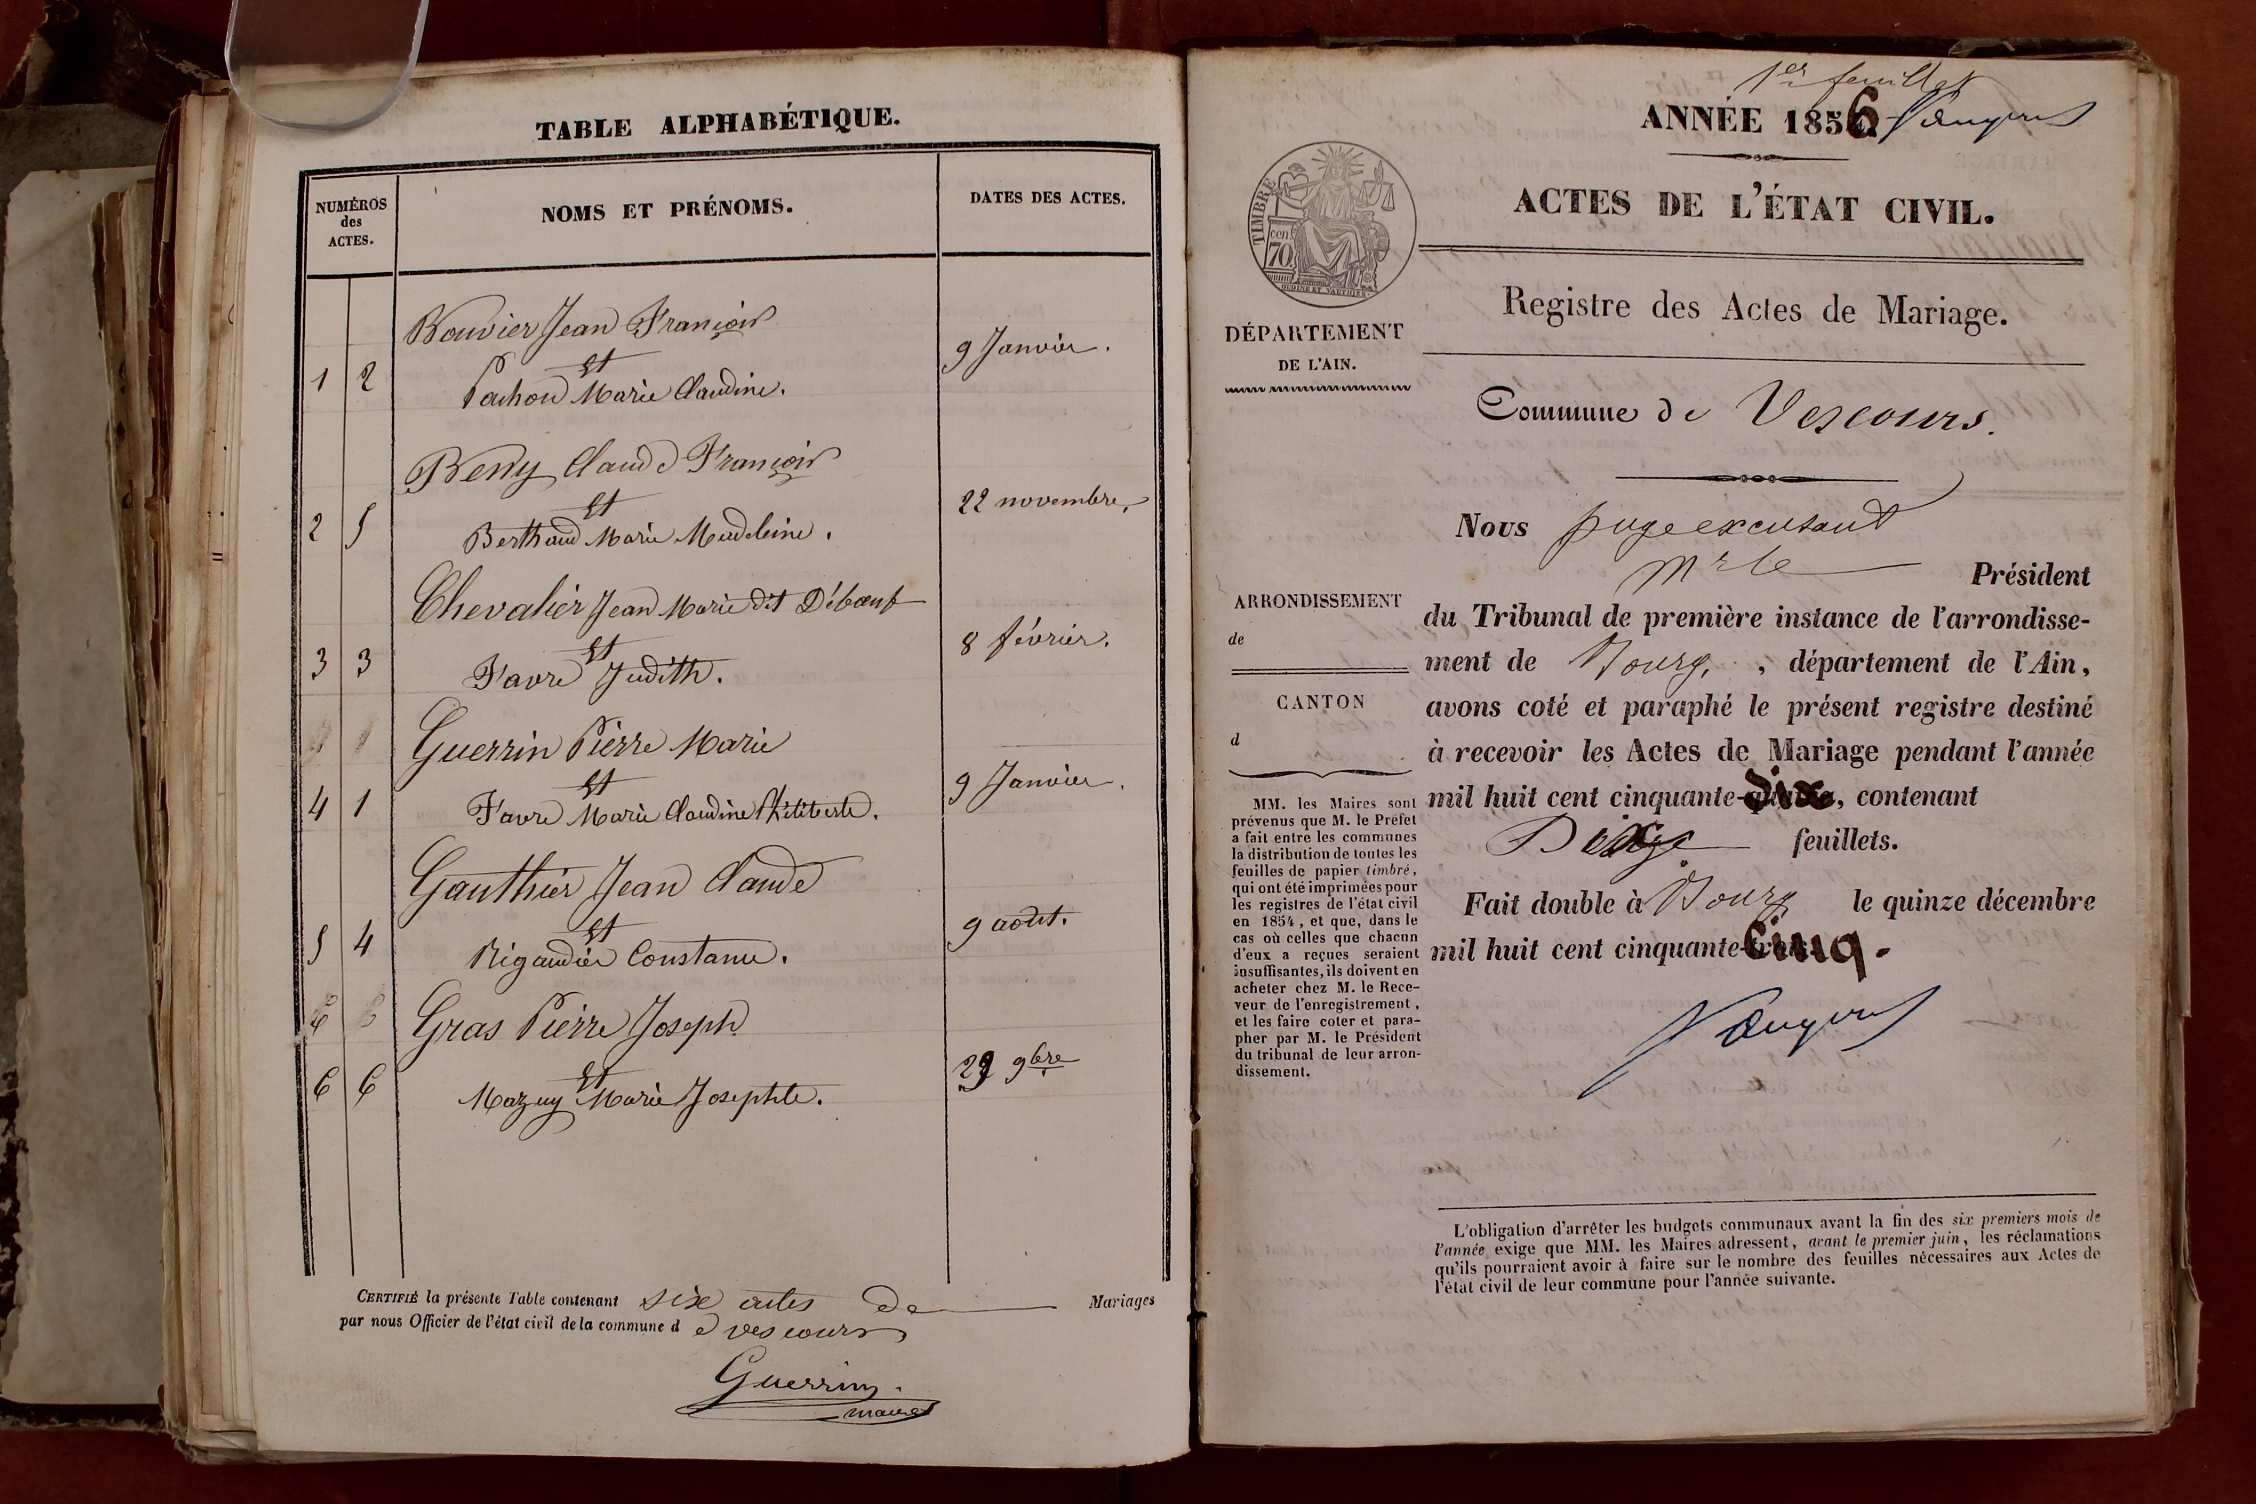 TABLE ALPHABÉTIQUE.
NUMÉROS
des
ACTES.
NOMS ET PRÉNOMS.
DATES DES ACTES.
Bouvier Jean François
Et
1 2 Pauhon Marie Claudine. 9 Janvier.
Berry Claude François
Et
2 5 Berthaud Marie Madeleine. 22 novembre.
Chevalier Jean Marie dit Débœuf
Et
3 3 Favre Judith. 8 février.
Guerrin Pierre Marie
Et
4 1 Favre Marie Claudine Philiberte. 9 Janvier.
Gauthier Jean Claude
Et
5 4 Rigaudier Constance. 9 août.
Gras Pierre Joseph
Et
6 6 Mazuy Marie Josephte. 29 9bre
CERTIFIÉ la présente Table contenant six actes de Mariages
par nous Officier de l'état civil de la commune d e Vescours
Guerrin
maire
1er feuillet
ANNÉE 1856
ACTES DE L'ÉTAT CIVIL.
TIMBRE
cen.
70
Registre des Actes de Mariage.
DÉPARTEMENT
DE L'AIN.
Commune de Vescours.
Nous juge excusant
Mr le Président
du Tribunal de première instance de l'arrondisse-
ment de Bourg, , département de l'Ain,
avons coté et paraphé le présent registre destiné
à recevoir les Actes de Mariage pendant l'année
mil huit cent cinquante-six, contenant
Dix feuillets.
Fait double à Bourg le quinze décembre
mil huit cent cinquante-Cinq.
ARRONDISSEMENT
de
CANTON
d
MM. les Maires sont
prévenus que M. le Préfet
a fait entre les communes
la distribution de toutes les
feuilles de papier timbré,
qui ont été imprimées pour
les registres de l'état civil
en 1854, et que, dans le
cas où celles que chacun
d'eux a reçues seraient
insuffisantes, ils doivent en
acheter chez M. le Rece-
veur de l'enregistrement,
et les faire coter et para-
pher par M. le Président
du tribunal de leur arron-
dissement.
L'obligation d'arrêter les budgets communaux avant la fin des six premiers mois de
l'année exige que MM. les Maires adressent, avant le premier juin, les réclamations
qu'ils pourraient avoir à faire sur le nombre des feuilles nécessaires aux Actes de
l'état civil de leur commune pour l'année suivante.